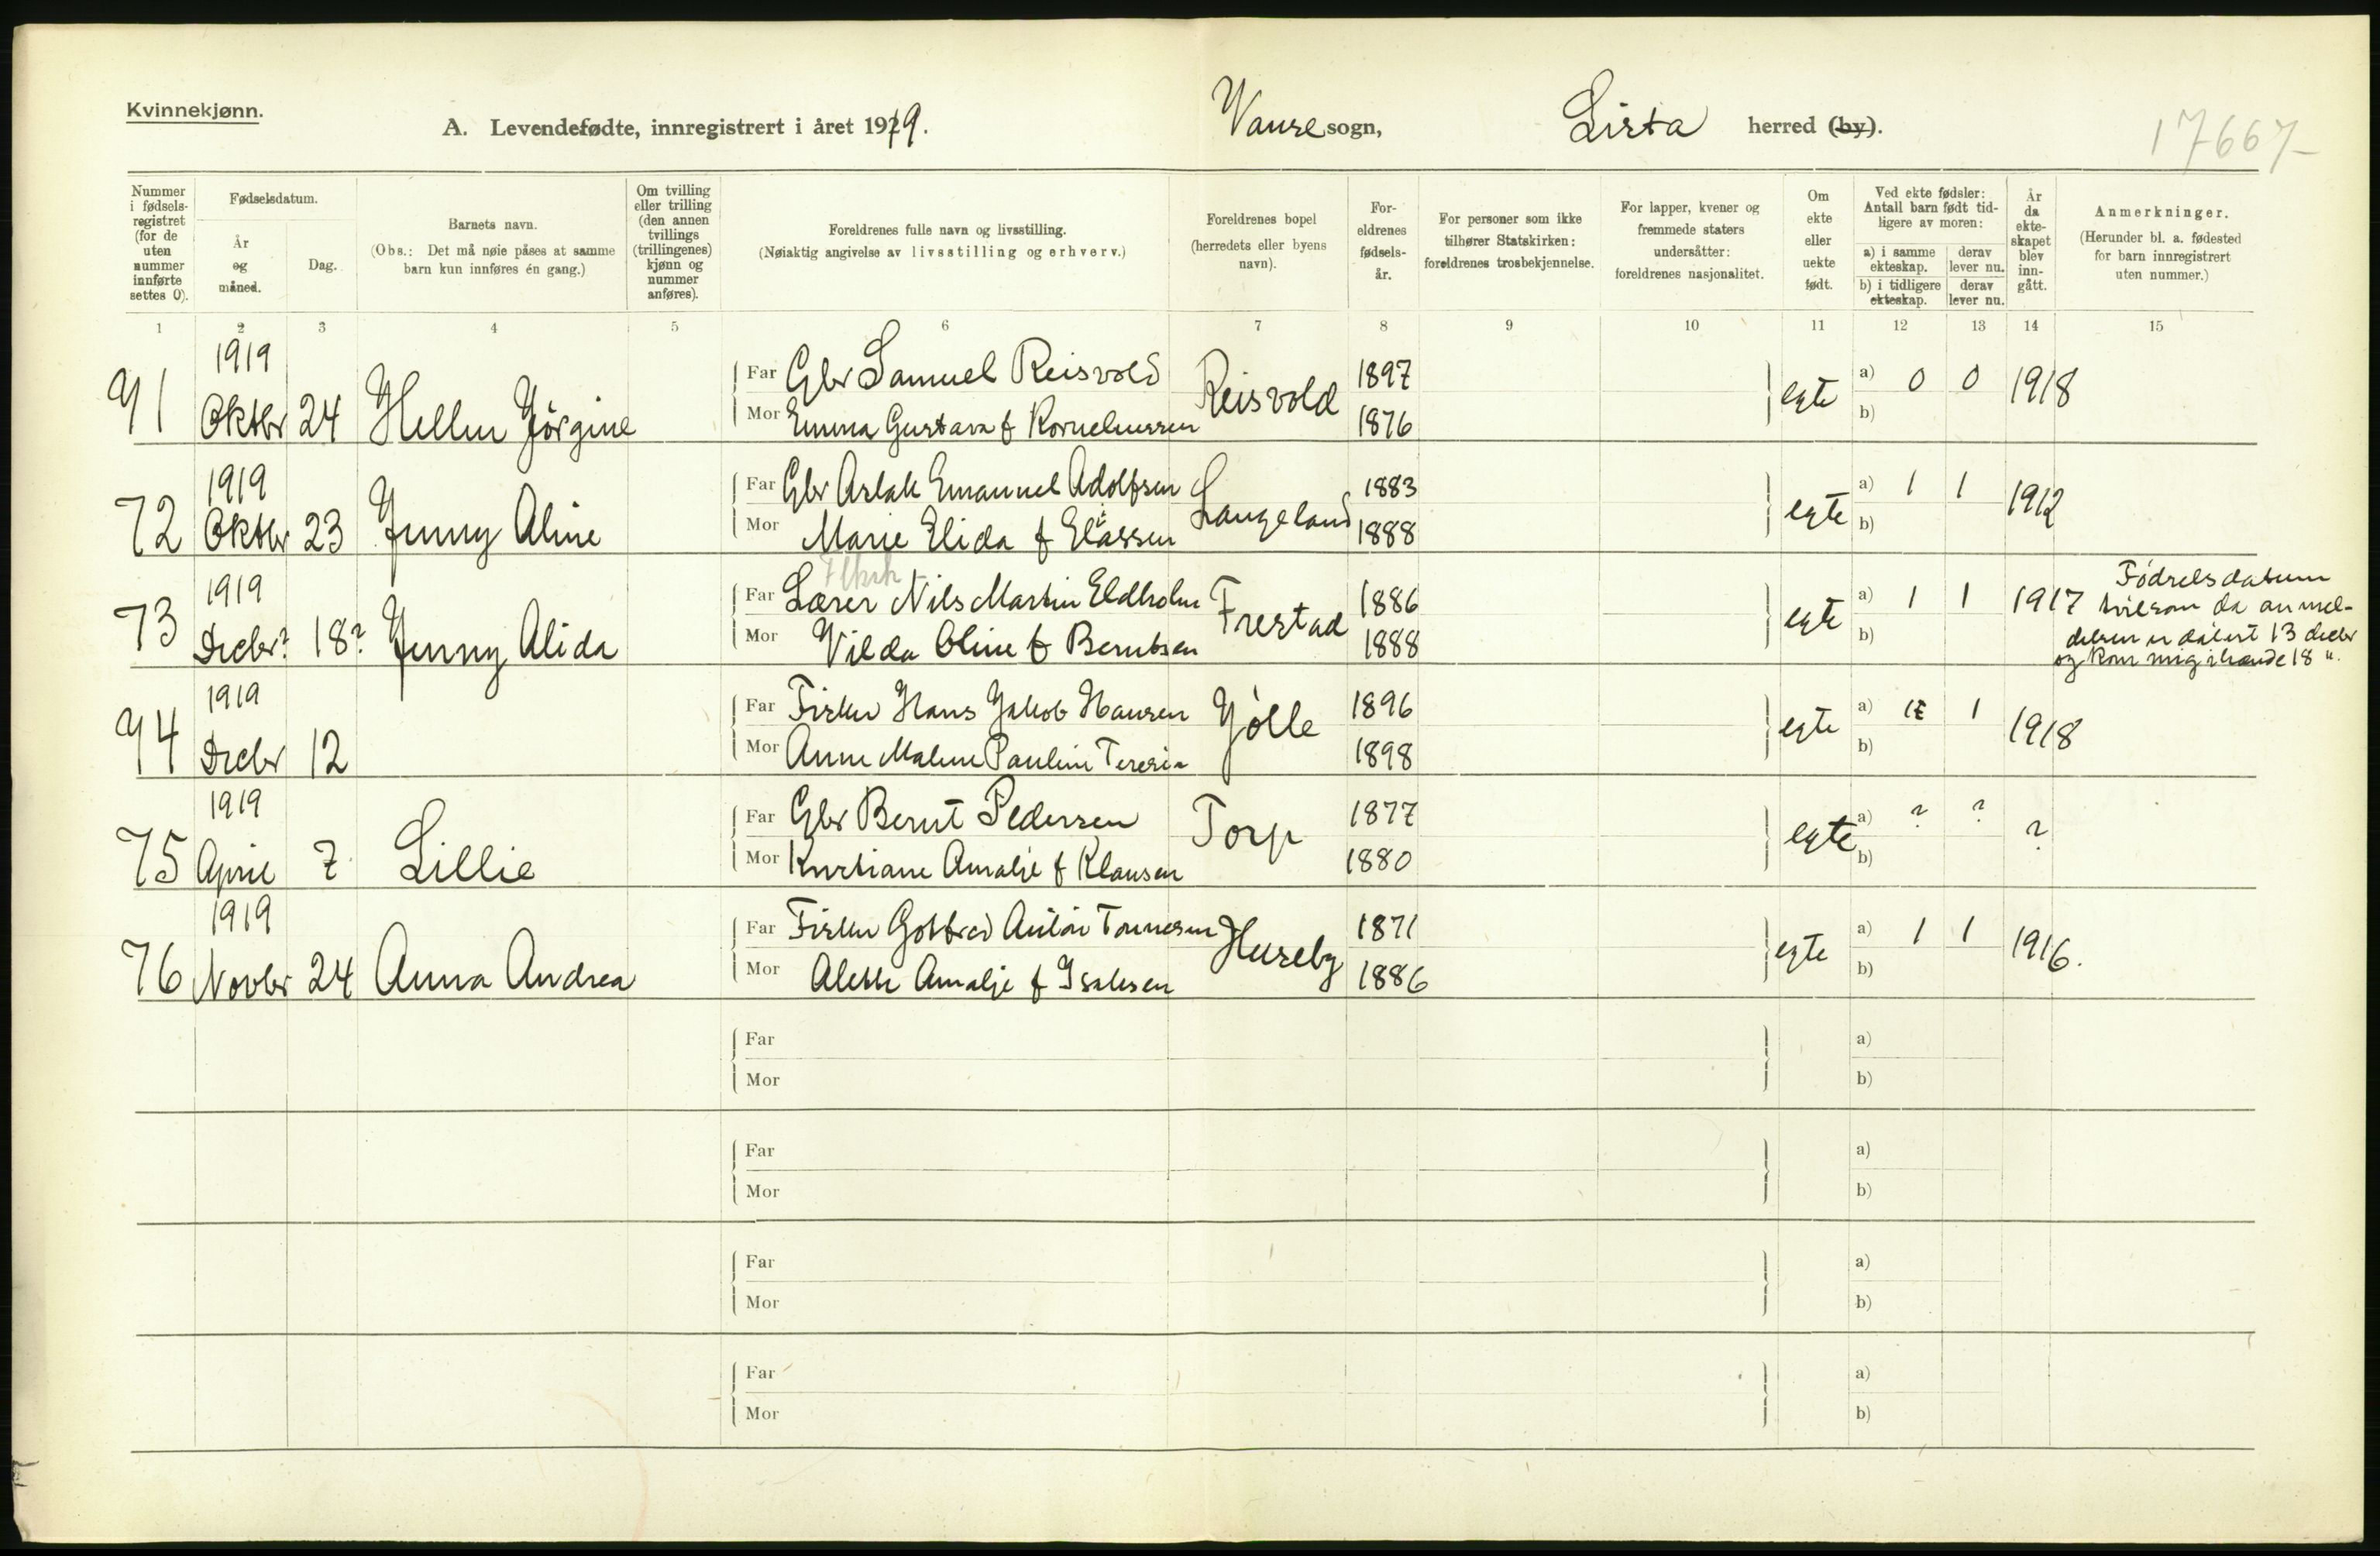 Kvinnekjønn.
A. Levendefødte, innregistrert i året 1919. Vanse sogn, Lista herred (by).
17667
Nummer i fødselsregistret (for de uten nummer innførte settes 0).
Fødselsdatum.
År og måned.
Dag.
Barnets navn.
(Obs.: Det må nøie påses at samme barn kun innføres én gang.)
Om tvilling eller trilling (den annen tvillings (trillingenes) kjønn og nummer anføres).
Foreldrenes fulle navn og livsstilling.
(Nøiaktig angivelse av livsstilling og erhverv.)
Foreldrenes bopel (herredets eller byens navn).
Foreldrenes fødselsår.
For personer som ikke tilhører Statskirken: foreldrenes trosbekjennelse.
For lapper, kvener og fremmede staters undersåtter: foreldrenes nasjonalitet.
Om ekte eller uekte født.
Ved ekte fødsler: Antall barn født tidligere av moren:
a) i samme ekteskap. derav lever nu.
b) i tidligere ekteskap. derav lever nu.
År da ekteskapet blev inngått.
Anmerkninger.
(Herunder bl. a. fødested for barn innregistrert uten nummer.)
1 2 3 4 5 6 7 8 9 10 11 12 13 14 15
71 1919 Oktbr 24 Hellen Jörgine
Far Gbr Samuel Reisvold Reisvold 1897 egte a) 0 0 1918
Mor Emma Gustava f Korneliussen 1876 b)
72 1919 Oktbr 23 Jenny Aline
Far Gbr Aslak Emanuel Adolfsen Langeland 1883 egte a) 1 1 1912
Mor Marie Elida f Eliassen 1888 b)
73 1919 Decbr? 18? Jenny Alida
Far Lærer Nils Martin Eldholm Frestad 1886 egte a) 1 1 1917
Mor Vilda Oline f Berntsen 1888 b)
Födselsdatum
tvilsom da anmel-
delsen er datert 13 decbr
og kom mig ihænde 18 ".
74 1919 Decbr 12
Far Fisker Hans Jakob Hansen Jölle 1896 egte a) 1 1 1918
Mor Anne Malene Pauline Teresia 1898 b)
75 1919 April 7 Lillie
Far Gbr Bernt Pedersen Torp 1877 egte a) ? ? ?
Mor Kristiane Amalie f Klausen 1880 b)
76 1919 Novbr 24 Anna Andrea
Far Fisker Gotfred Anton Tønnesen Huseby 1871 egte a) 1 1 1916.
Mor Alette Amalie f Isaksen 1886 b)
Far a)
Mor b)
Far a)
Mor b)
Far a)
Mor b)
Far a)
Mor b)